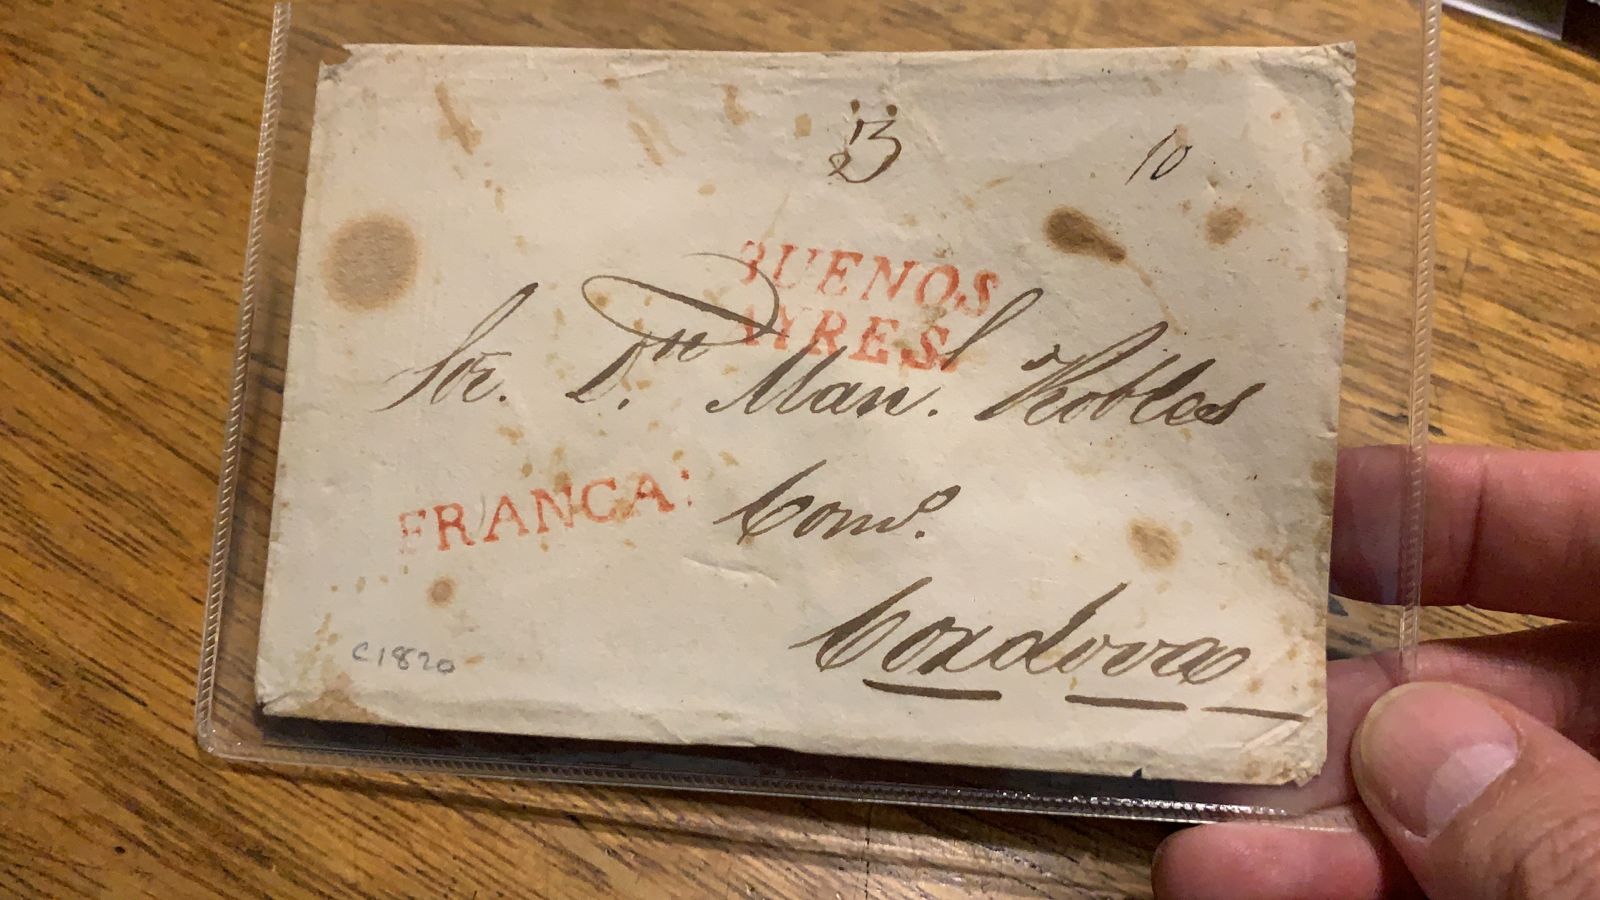 10
BUENOS
AYRES.
Sor. Dn. Manl. Robles
FRANCA.
Como.
Cordova
C1820